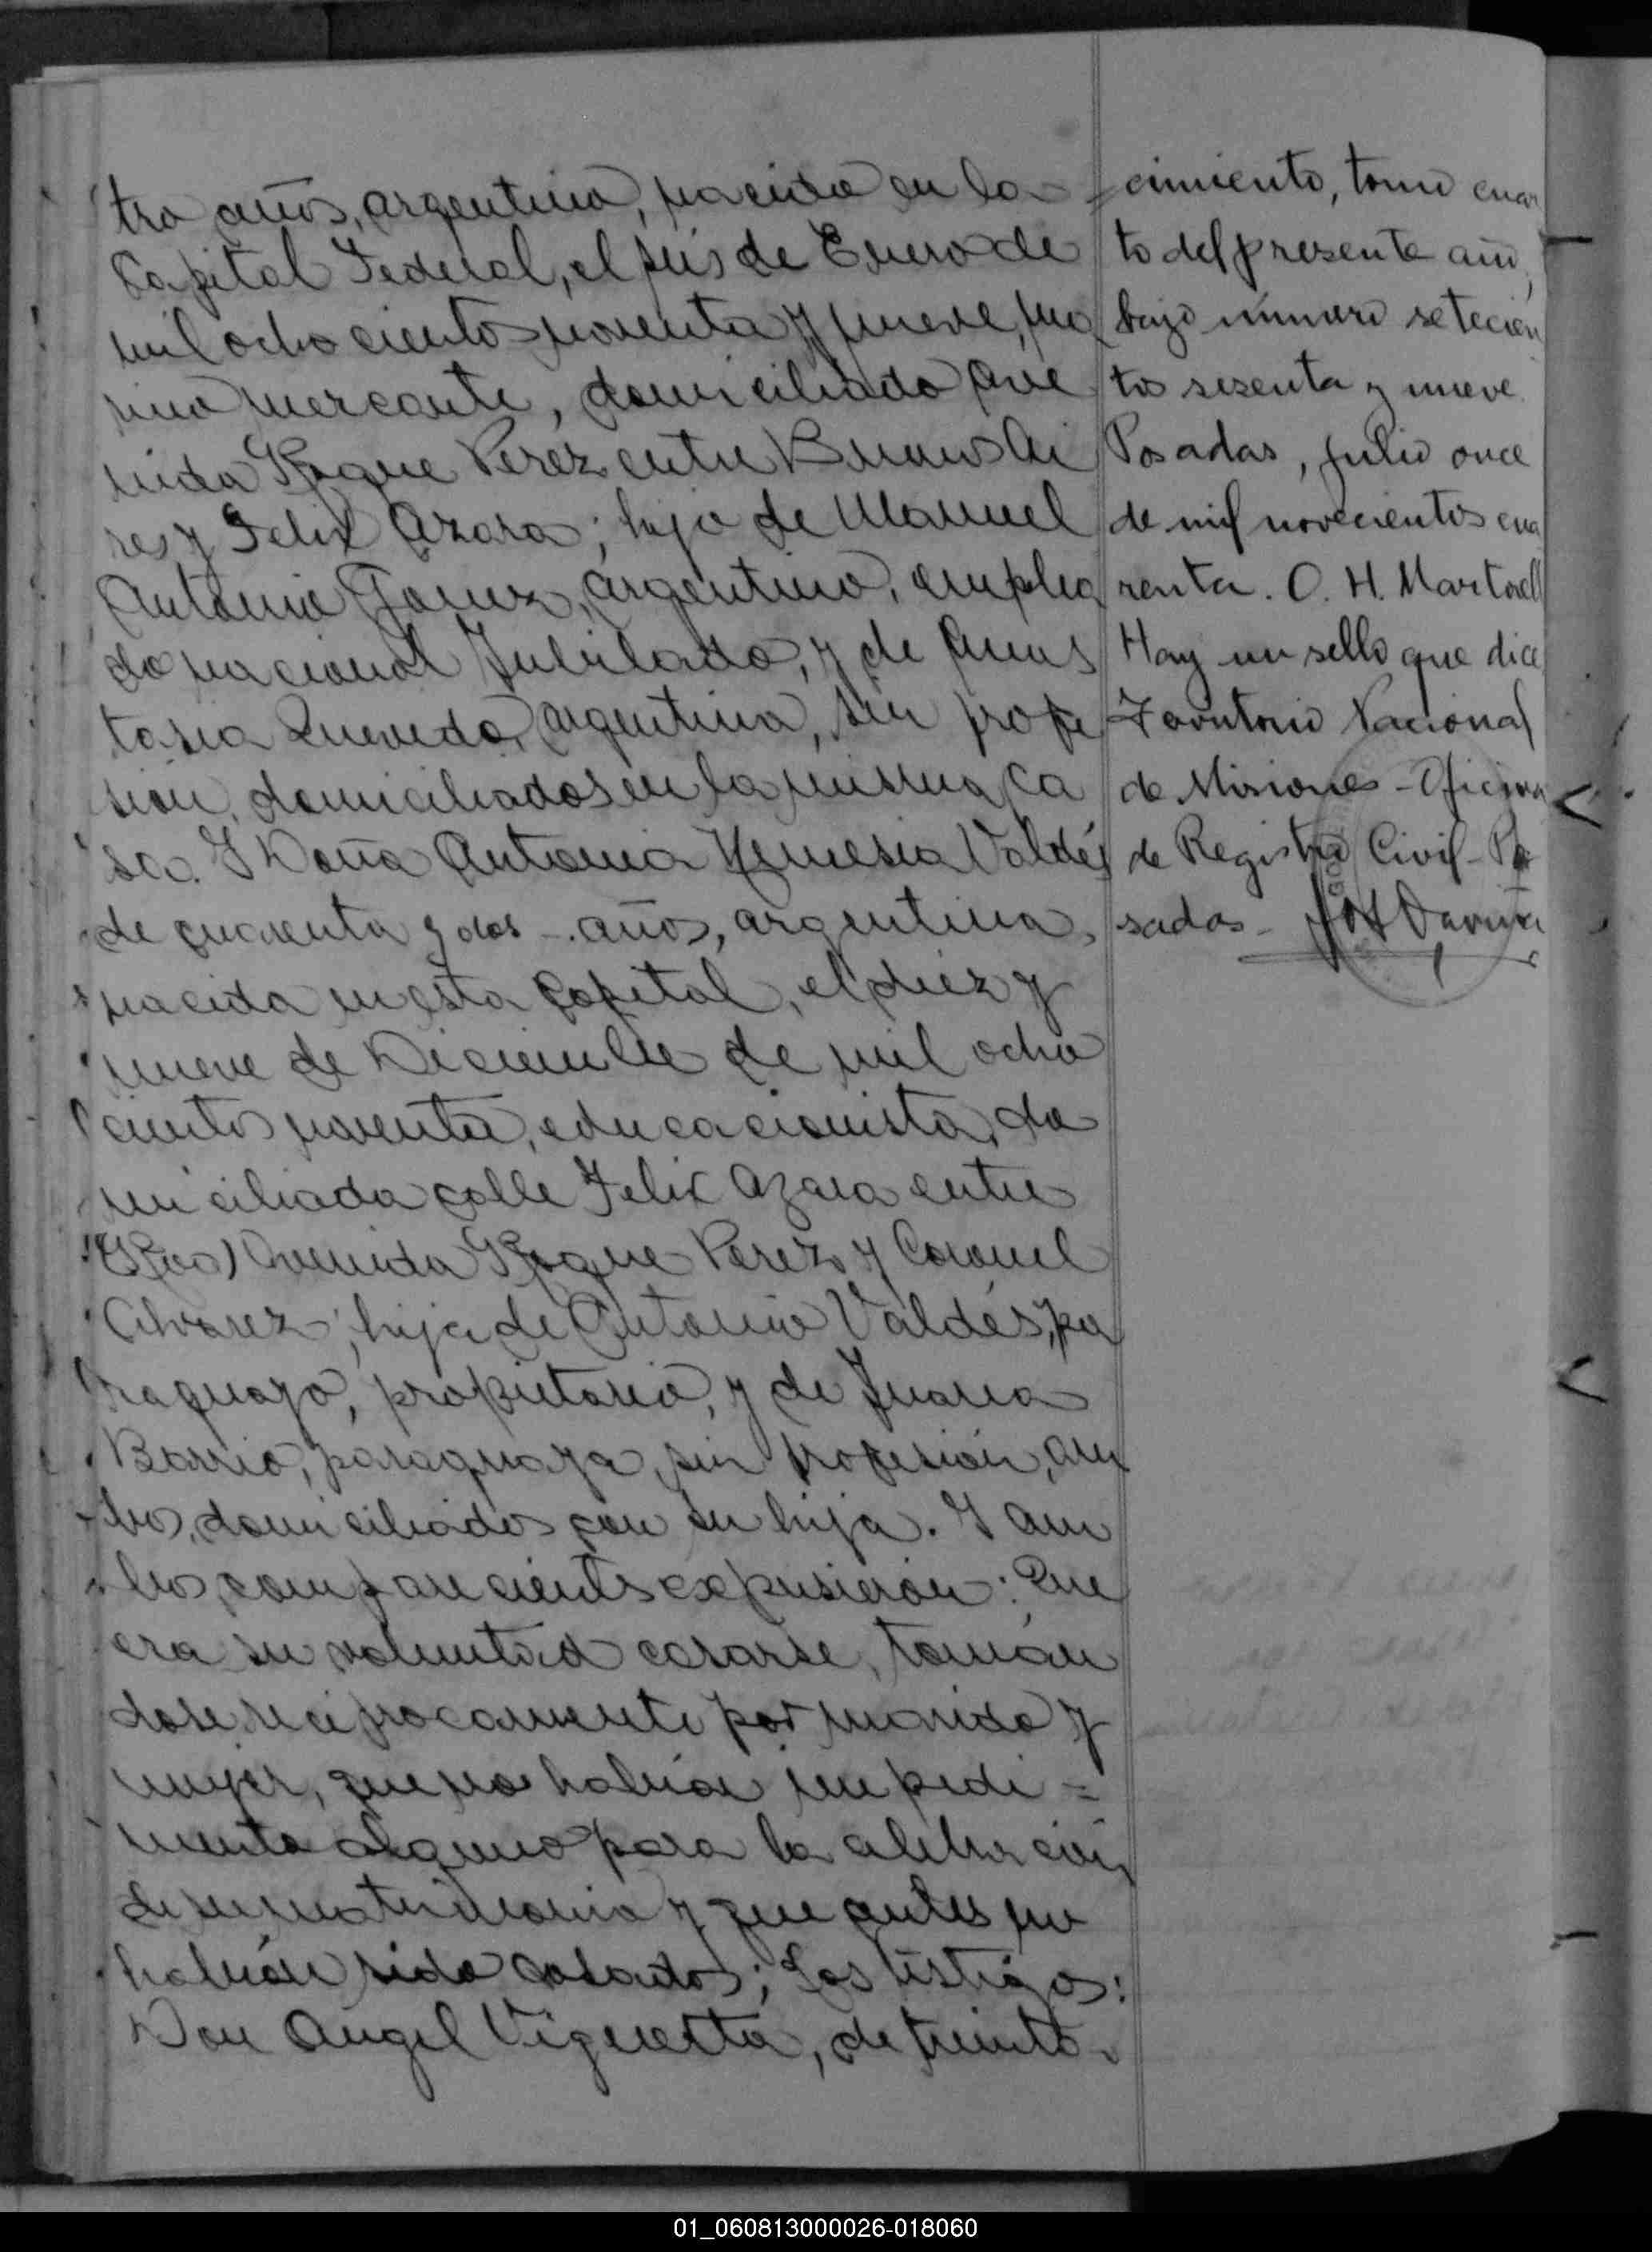 tro años, argentino, nacido en la
Capital Federal, el seis de Enero de
mil ochocientos noventa y nueve, ma
rino mercante, domiciliado Ave
nida Roque Perez entre Buenos Ai
res y Felix Azara; hijo de Manuel
Antonio Gomez, argentino, emplea
do nacional Jubilado, y de Anas
tasia Quevedo, argentina, sin profe
sión, domiciliados en la misma ca
sa. Y Doña Antonia Nemesia Valdés
de cuarenta y dos - años, argentina,
nacida en esta Capital, el diez y
nueve de Diciembre de mil ocho
cientos noventa, educacionista, do
miciliada calle Felix Azara entre
Avenida Roque Perez y Coronel
Alvarez; hija de Antonio Valdés, pa
raguayo, propietario, y de Juana
Barrio, paraguaya, sin profesión, am
bos, domiciliados con su hija. Y am
bos comparecientes expusieron: Que
era su voluntad casarse, tomán
dose reciprocamente por marido y
mujer, que no habían impedi =
mento alguno para la celebración
de su matrimonio y que antes no
habían sido casados; Los testigos:
Don Angel Vignetta, de treinta
cimiento, tomo cuar
to del presente año,
bajo número setecien
tos sesenta y nueve.
Posadas, julio once
de mil novecientos cua
renta. O. H. Martorell
Hay un sello que dice
Territorio Nacional
de Misiones - Oficina
de Registro Civil - Po
sadas -
01_060813000026-018060